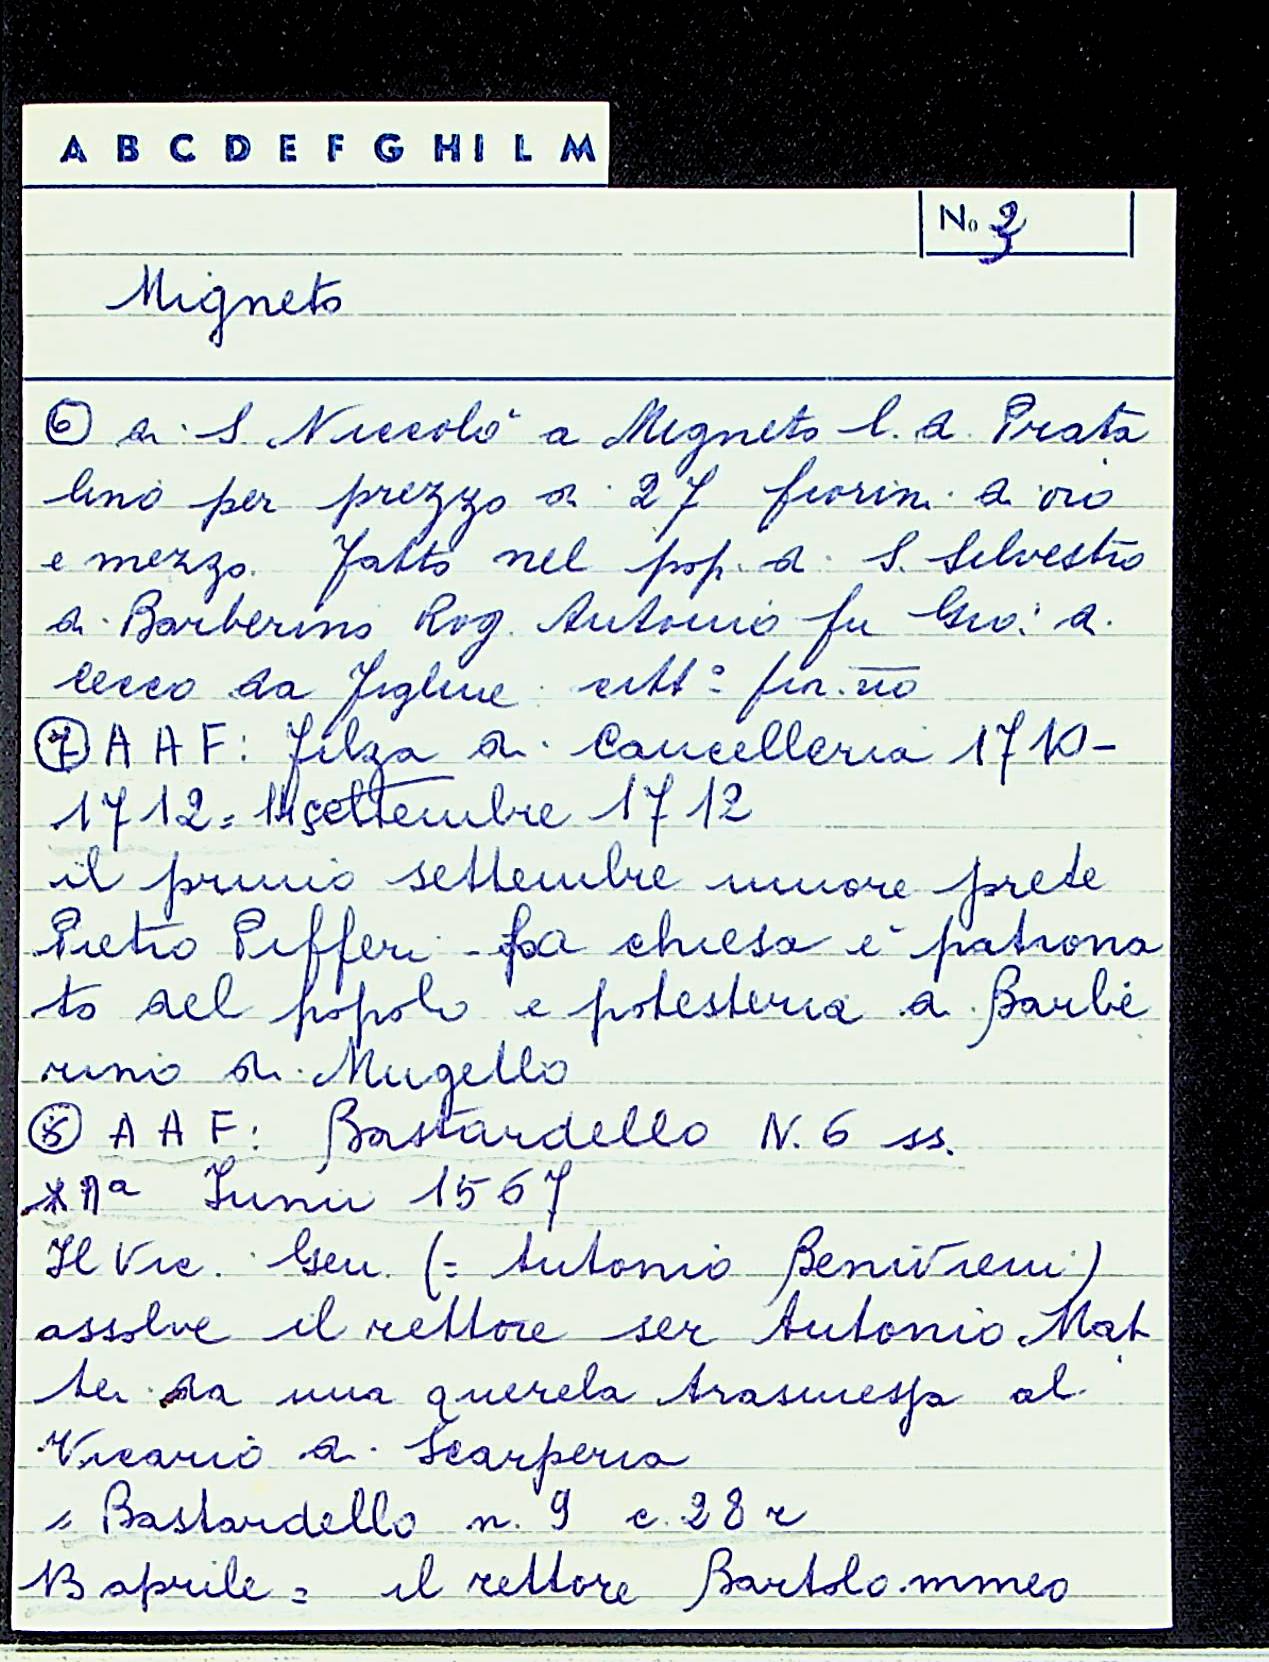 A B C D E F G H I L M
No 2
Migneto
⑥ di S Niccolò a Migneto l. d. Prata
lino per prezzo di 27 fiorini di oro
e mezzo. Fatto nel pop. di S. Silvestro
di Barberino Rog. Antonio fu Gio: di
Cecco da Figline citt° fior.no
⑦ A A F: Filza di Cancelleria 1710-
1712= 14 settembre 1712
il primo settembre muore prete
Pietro Pifferi - la chiesa è patrona
to del popolo e potesteria di Barbe
rino di Mugello
⑧ A A F: Bastardello N. 6 ss.
Junii 1567
Il Vic. Gen. (= Antonio Benivieni)
assolve il rettore ser Antonio Mat
tei da una querela trasmessa al
Vicario di Scarperia
= Bastardello n. 9 c. 28 r
13 aprile = il rettore Bartolommeo